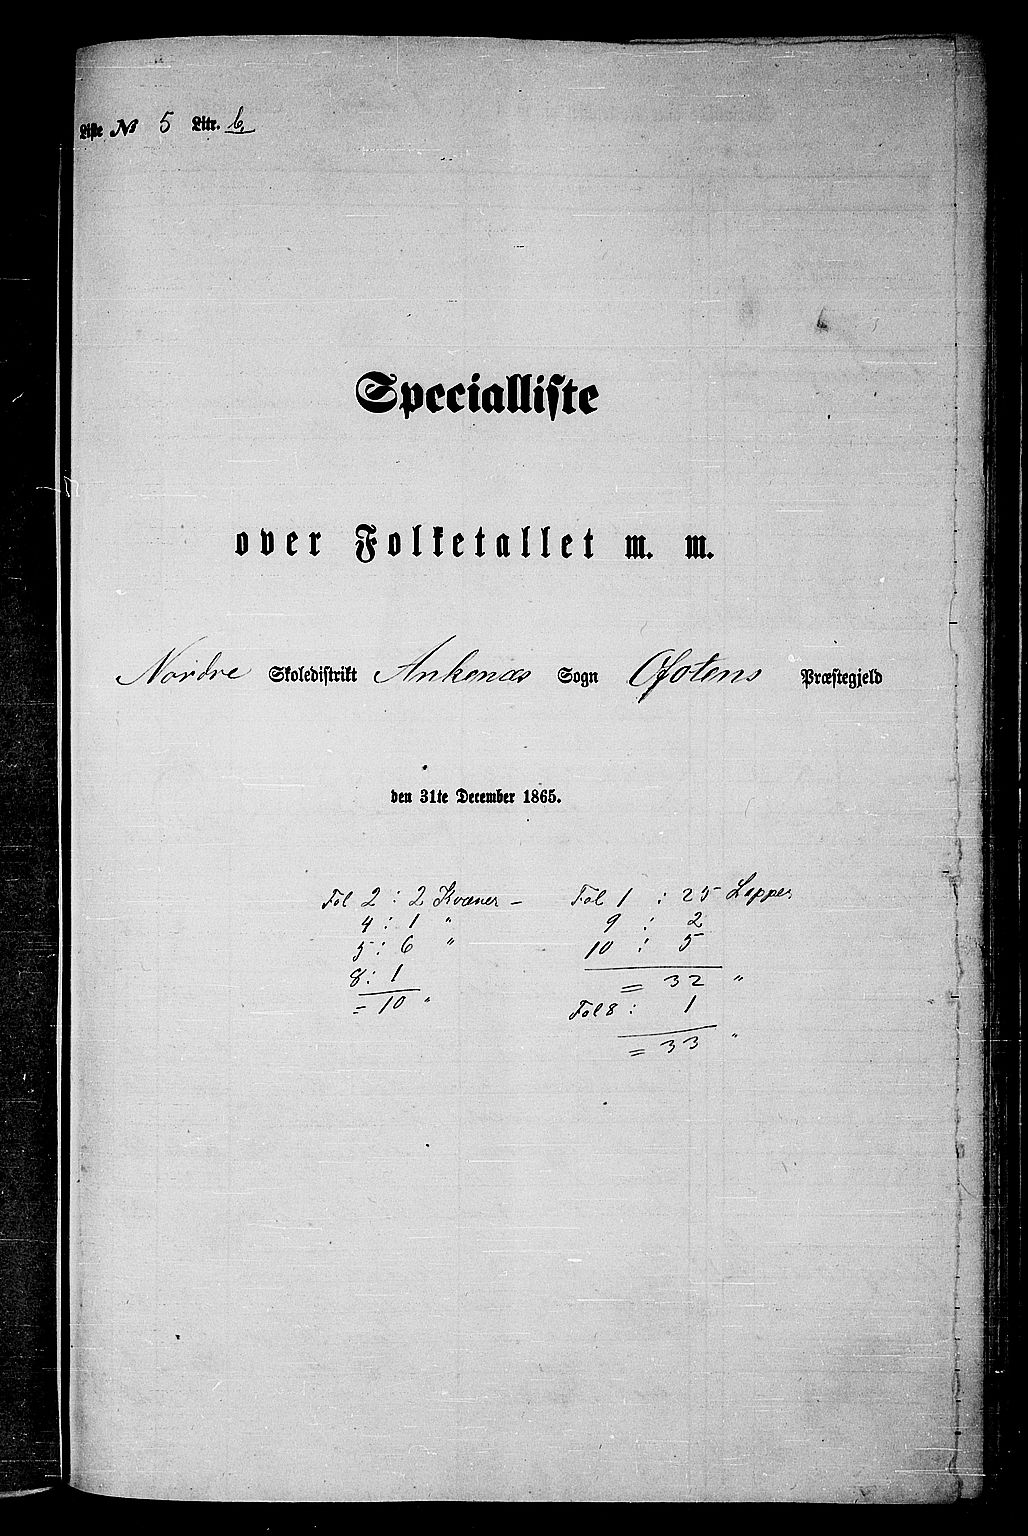 Liste № 5 Litr. b.
Specialliste
over Folketallet m. m.
Nordre Skoledistrikt Ankenæs Sogn Ofotens Præstegjeld
den 31te December 1865.
Fol 2 : 2 Kvæner –
4 : 1 "
5 : 6 "
8 : 1
= 10 "
Fol 1 : 25 Lapper
9 : 2
10 : 5
= 32 "
Fol 8 : 1
= 33 "